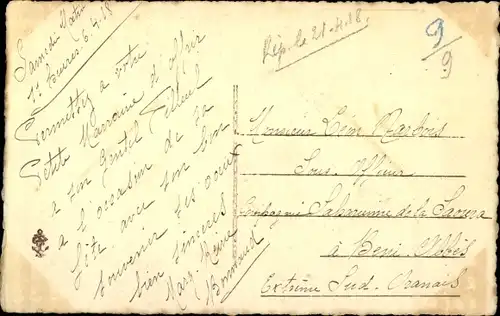 Samedi Matin
11 heures 6.4.18
Permettez à votre
Petite Marraine d'offrir
a son Gentil Filleul
a l'occasion de sa
fête avec son bon
souvenir ses vœux
bien sincères
Marg. Reine
Rép. le 21-4-18.
9/9
Monsieur Leon
Sous-Officier
Compagnie Saharienne de la Saoura
à Beni Abbès
Extrême Sud-Oranais